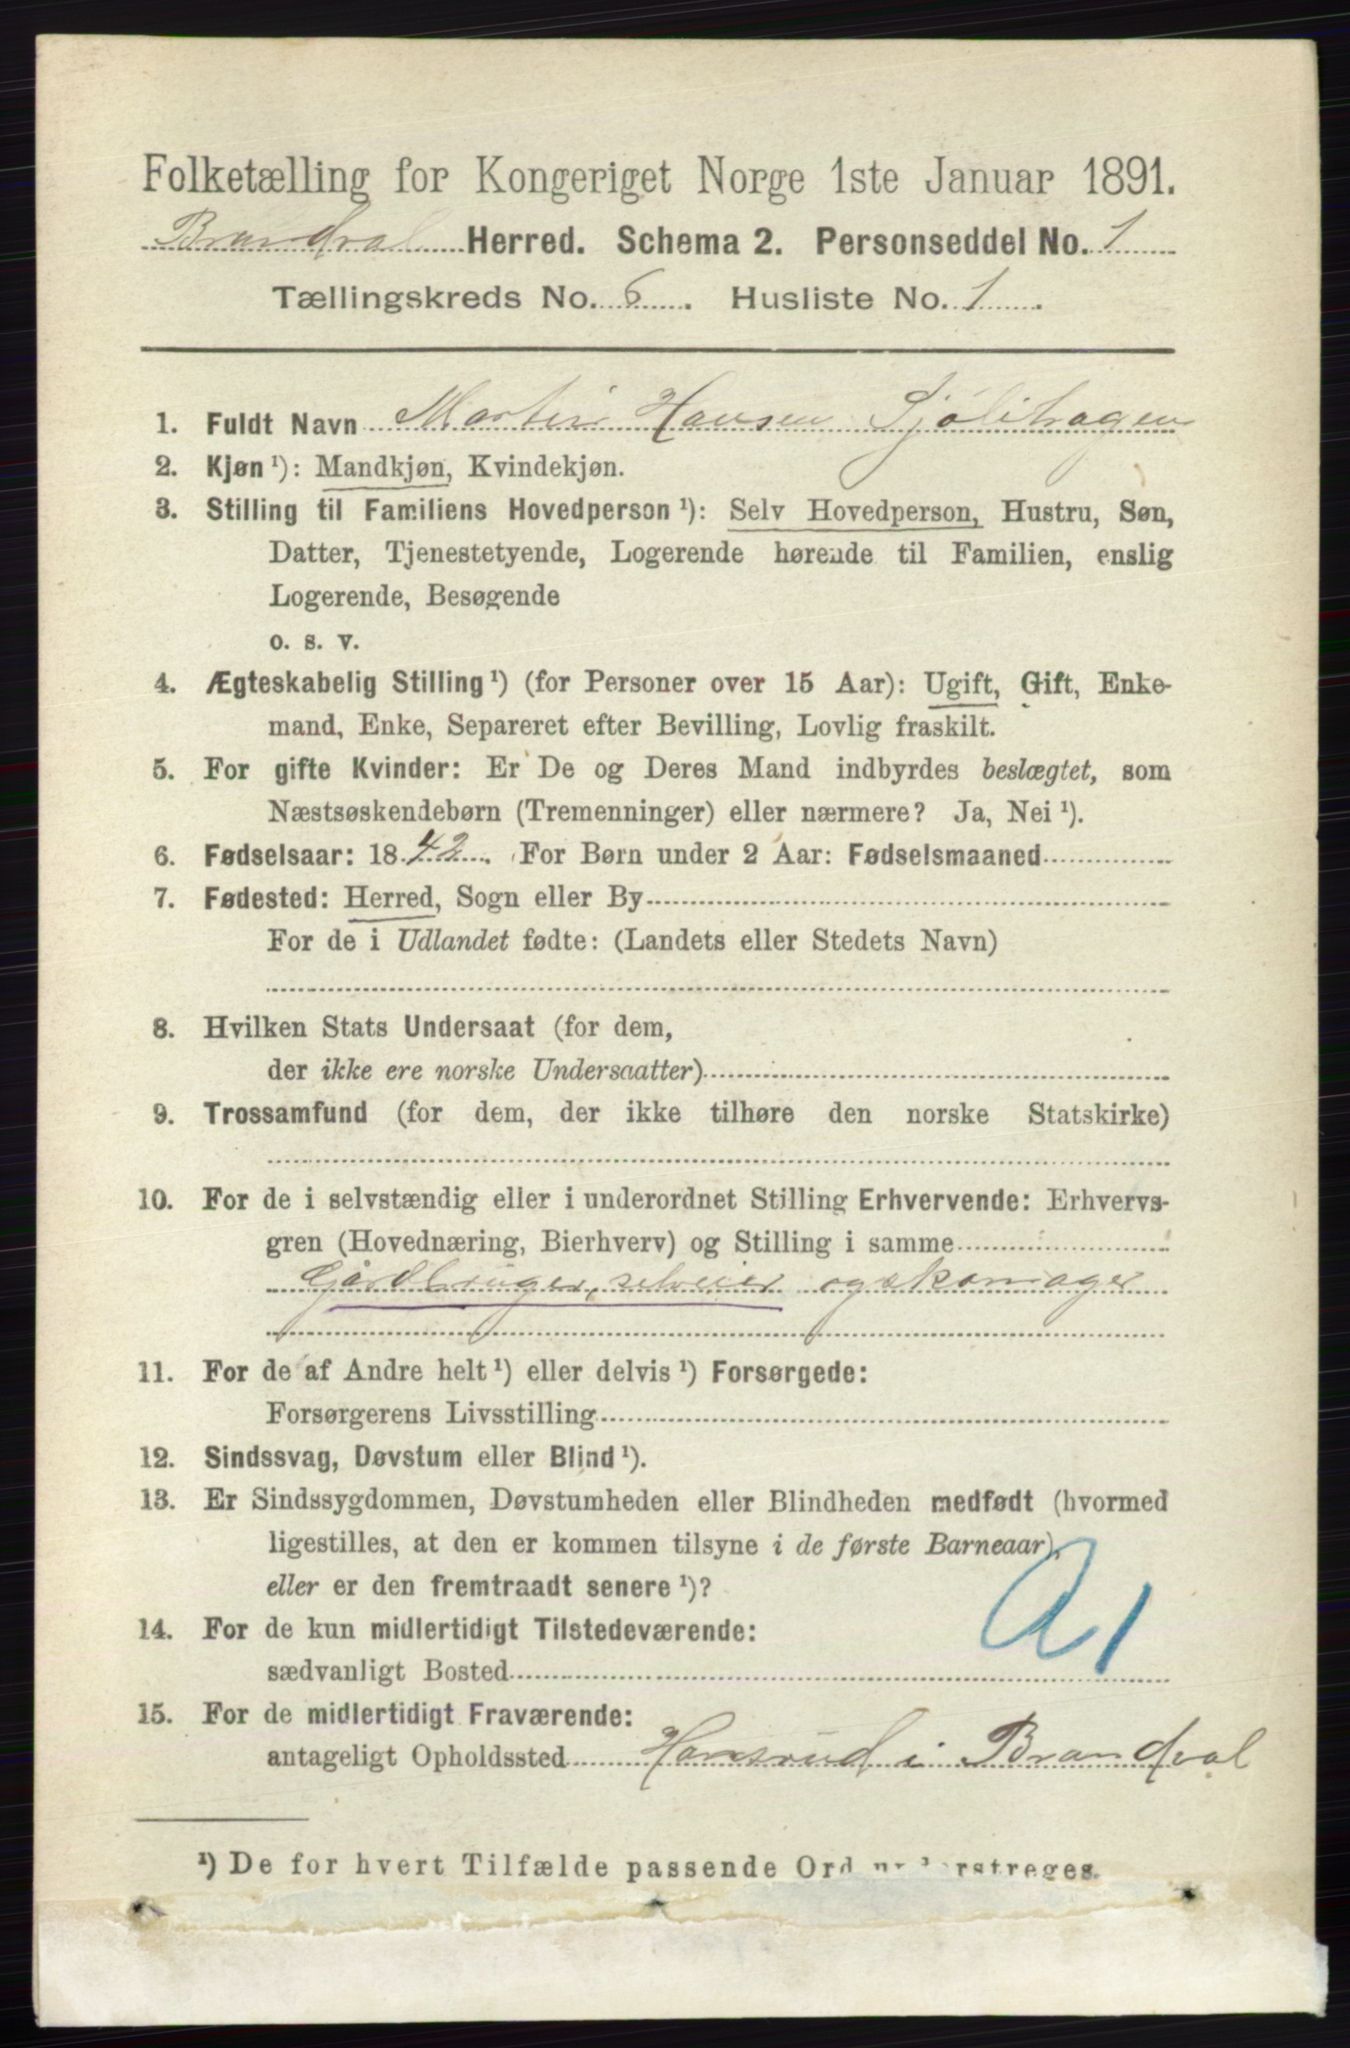 Folketælling for Kongeriget Norge 1ste Januar 1891.
Brandval Herred. Schema 2. Personseddel No. 1
Tællingskreds No. 6. Husliste No. 1.
1. Fuldt Navn Martin Hansen Sjølihagen
2. Kjøn ¹): Mandkjøn, Kvindekjøn.
3. Stilling til Familiens Hovedperson ¹): Selv Hovedperson, Hustru, Søn,
Datter, Tjenestetyende, Logerende hørende til Familien, enslig
Logerende, Besøgende
o. s. v.
4. Ægteskabelig Stilling ¹) (for Personer over 15 Aar): Ugift, Gift, Enke-
mand, Enke, Separeret efter Bevilling, Lovlig fraskilt.
5. For gifte Kvinder: Er De og Deres Mand indbyrdes beslægtet, som
Næstsøskendebørn (Tremenninger) eller nærmere? Ja, Nei ¹).
6. Fødselsaar: 1842. For Børn under 2 Aar: Fødselsmaaned
7. Fødested: Herred, Sogn eller By
For de i Udlandet fødte: (Landets eller Stedets Navn)
8. Hvilken Stats Undersaat (for dem,
der ikke ere norske Undersaatter)
9. Trossamfund (for dem, der ikke tilhøre den norske Statskirke)
10. For de i selvstændig eller i underordnet Stilling Erhvervende: Erhvervs-
gren (Hovednæring, Bierhverv) og Stilling i samme
Gårdbruger, selveier og skomager
11. For de af Andre helt ¹) eller delvis ¹) Forsørgede:
Forsørgerens Livsstilling
12. Sindssvag, Døvstum eller Blind ¹).
13. Er Sindssygdommen, Døvstumheden eller Blindheden medfødt (hvormed
ligestilles, at den er kommen tilsyne i de første Barneaar),
eller er den fremtraadt senere ¹)?
14. For de kun midlertidigt Tilstedeværende:
sædvanligt Bosted
15. For de midlertidigt Fraværende:
antageligt Opholdssted Hansrud i Brandval
¹) De for hvert Tilfælde passende Ord understreges.